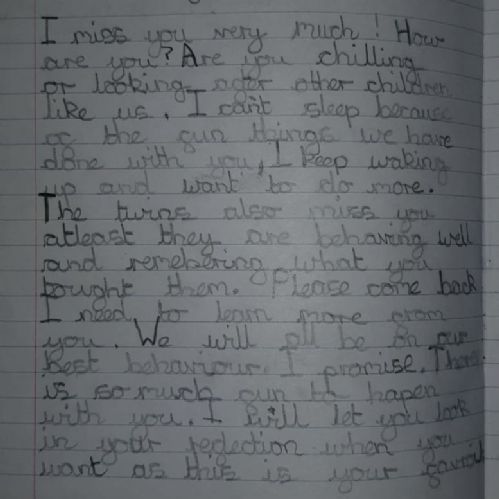 I miss you very much! How
are you? Are you chilling
or looking after other children
like us. I can't sleep because
of the fun things we have
done with you, I keep waking
up and want to do more.
The twins also miss you
atleast they are behaving well
and remebering what you
tought them. Please come back
I need to learn more from
you. We will all be on our
best behaviour I promise. There
is so much fun to hapen
with you. I will let you look
in your reflection when you
want as this is your